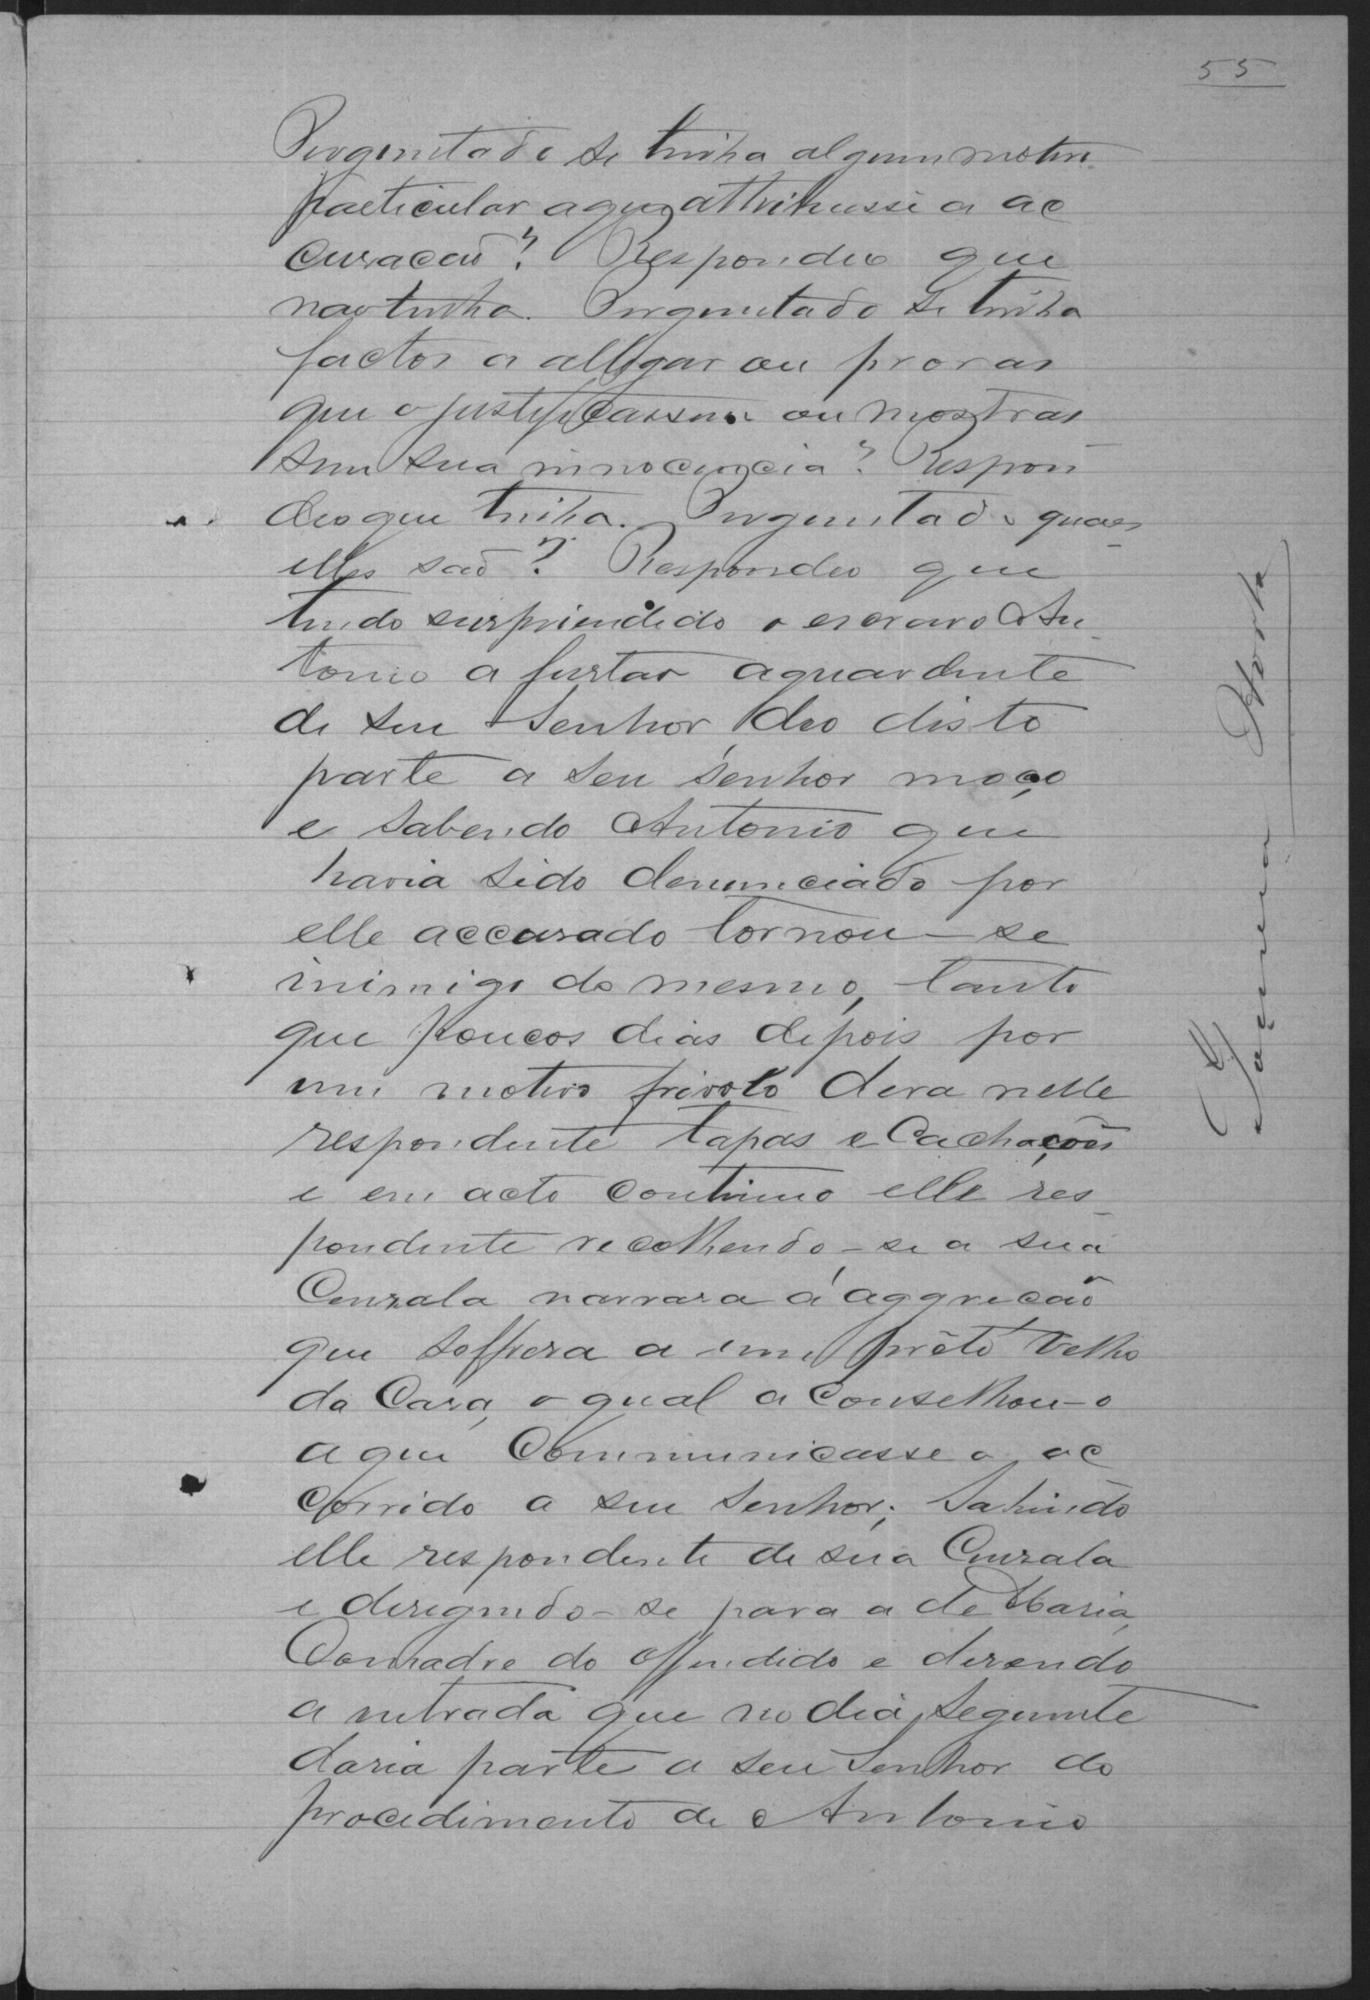 55
Perguntado se tinha algum motivo
particular a que attribuisse a ac
cusacaõ? Respondeo que
nao tinha. Perguntado se tinha
factos a allegar ou provas
que o justificassem ou mostras
sem sua innocencia? Respon
deo que tinha. Perguntado quaes
elles saõ? Respondeo que
tendo surpriendido o escravo An
tonio a furtar aguardente
de seu Senhor, deo disto
parte a seu senhor moço
e sabendo Antonio que
havia sido denunciado por
elle accusado tornou-se
inimigo do mesmo, tanto
que poucos dias depois por
um motivo frivolo dera nelle
respondente tapas e cachações
e em acto continuo elle res
pondente recolhendo-se a sua
Cenzala narrara á aggrecaõ
que soffrera a um prêto velho
da Casa, o qual aconselhou-o
a que communicasse o oc
corrido a seu Senhor; Sahindo
elle respondente de sua Cenzala
e deregindo-se para a de Maria,
Comadre do offendido e dizendo
a entrada que no dia seguinte
daria parte a seu Senhor do
procedimento de Antonio
Horta